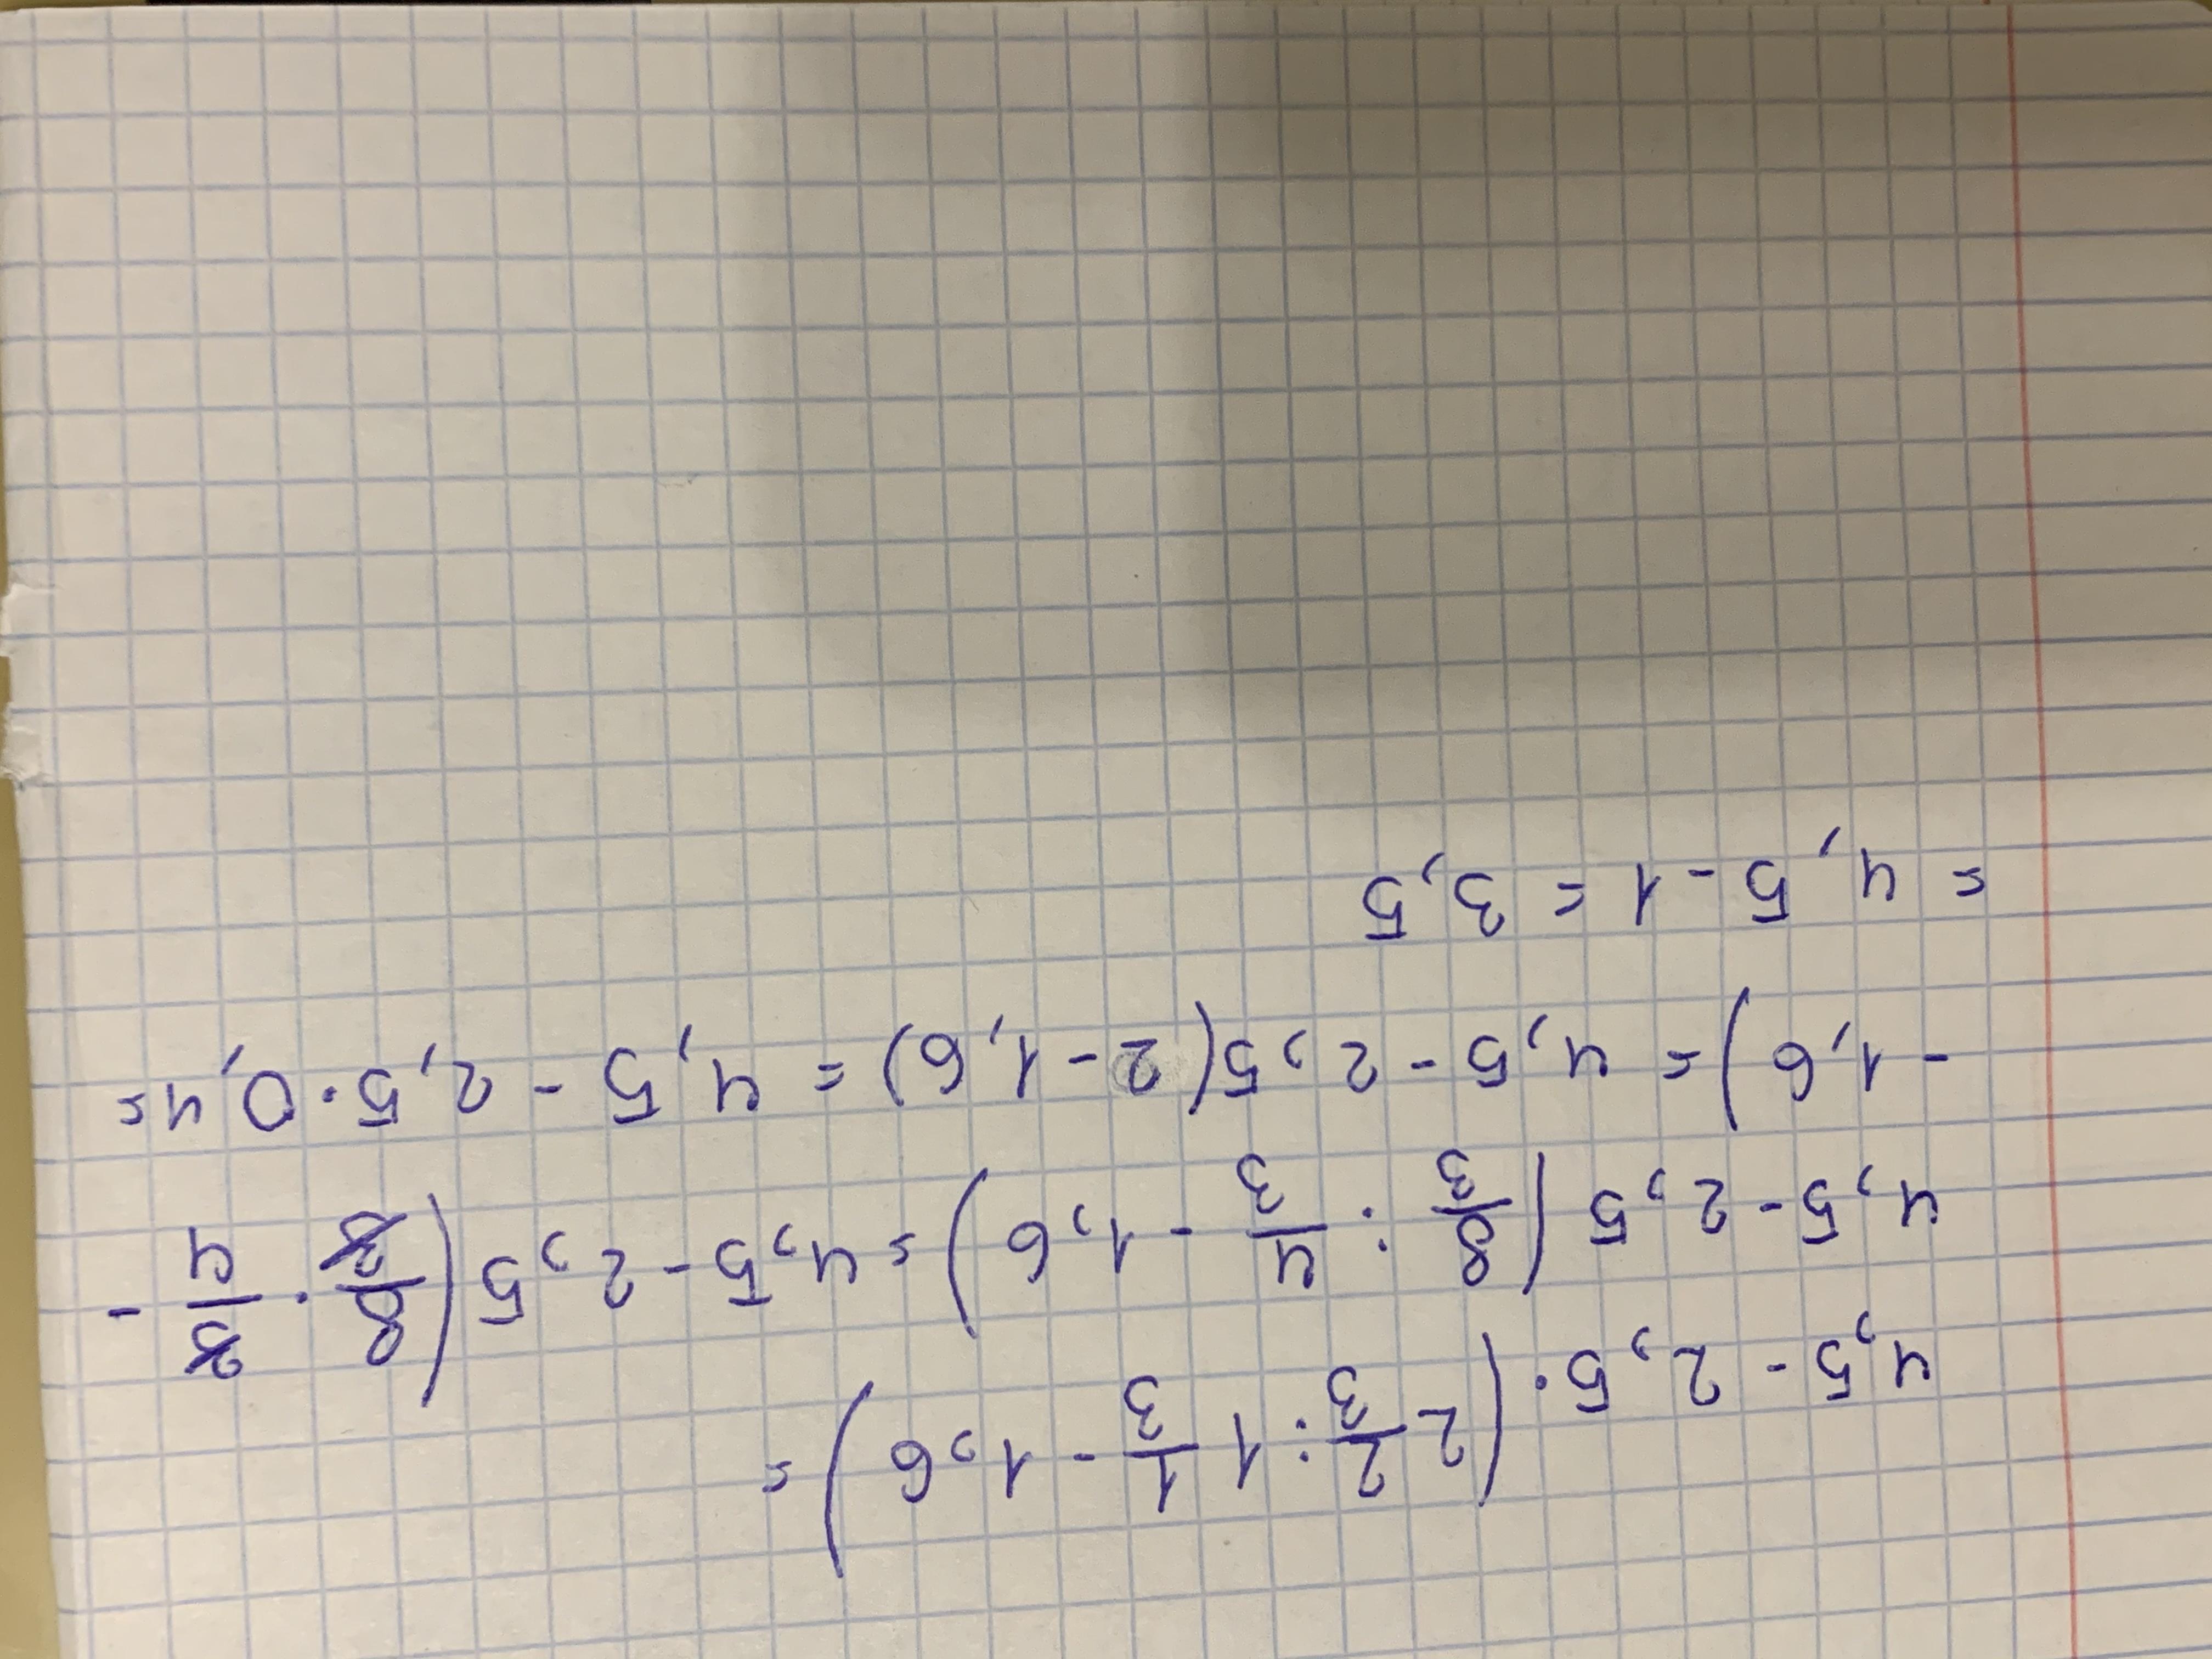 4,5 - 2,5 · (2 2/3 : 1 1/3 - 1,6) =
4,5 - 2,5 (8/3 : 4/3 - 1,6) = 4,5 - 2,5 (8/3 · 3/4 -
- 1,6) = 4,5 - 2,5 (2 - 1,6) = 4,5 - 2,5 · 0,4 =
= 4,5 - 1 = 3,5